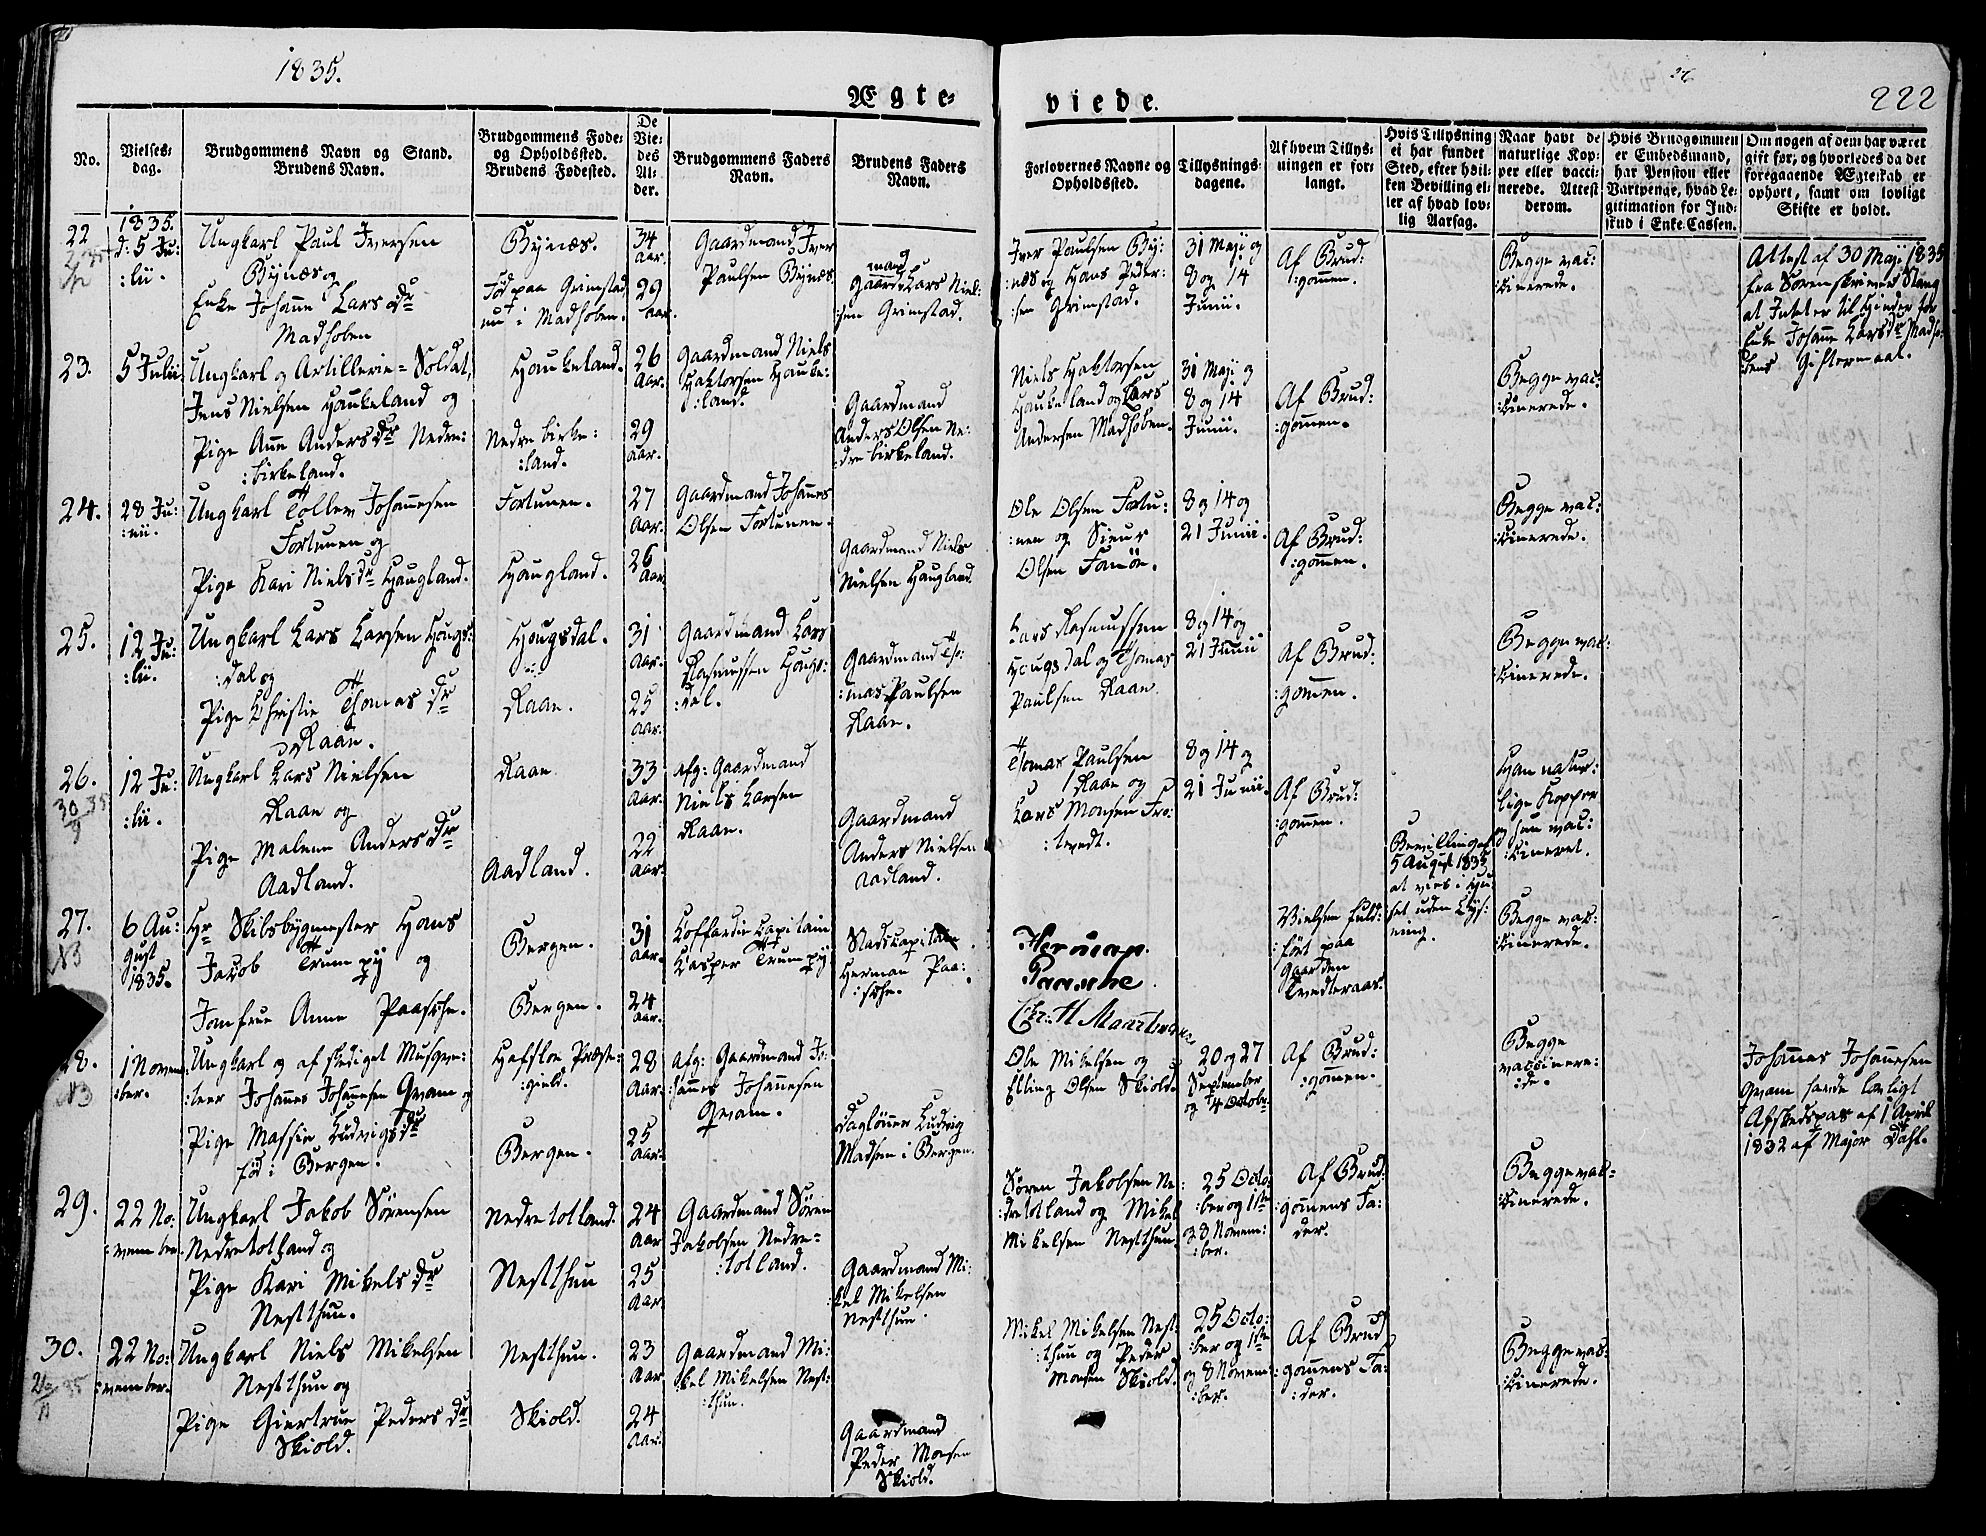 1835.
222
Ægte-
viede.
No.
Vielses-
dag.
Brudgommens Navn og Stand.
Brudens Navn.
Brudgommens Føde-
og Opholdssted.
Brudens Fødested.
De
Vie-
des
Al-
der.
Brudgommens Faders
Navn.
Brudens Faders
Navn.
Forlovernes Navne og
Opholdssted.
Tillysnings-
dagene.
Af hvem Tillys-
ningen er for-
langt.
Hvis Tillysning
ei har fundet
Sted, efter hvil-
ken Bevilling el-
ler af hvad lov-
lig Aarsag.
Naar havt de
naturlige Kop-
per eller vacci-
nerede. Attest
derom.
Hvis Brudgommen
er Embedsmand,
har Pension eller
Vartpenge, hvad Le-
gitimation for Ind-
skud i Enke-Cassen.
Om nogen af dem har været
gift før; og hvorledes da det
foregaaende Ægteskab er
ophørt, samt om lovligt
Skifte er holdt.
22
1835.
d: 5 Ju:
:lii.
Ungkarl Paul Iversen
Bynæs og
Enke Johanne Lars Dr
Madhoben
Bynæs.
Fød paa Grimstad
nu i Madhoben.
34
Aar.
29
Aar.
Gaardmand Iver
Paulsen Bynæs
Gaardmand Lars Niel:
:sen Grimstad.
Iver Paulsen By:
:næs og Hans Peder:
:sen Grimstad.
31 Maji og
8 og 14
Junii.
Af Brud:
:gommen.
Begge vac:
:cinerede.
Attest af 30 Maji 1835
fra Sorenskriver Stang
at Intet er til Hinder for
Enke Johanne Larsdr Madho:
:bens Giftermaal.
23.
5 Julii
Ungkarl og Artillerie-Soldat,
Jens Nielsen Haukeland og
Pige Anne Anders Dr Nedre:
:birkeland.
Haukeland.
Nedre birke:
:land.
26
Aar.
29
Aar.
Gaardmand Niels
Haktorsen Hauke:
:land.
Gaardmand
Anders Olsen Ne:
:dre birkeland.
Niels Haktorsen
Haukeland og Lars
Andersen Madhoben.
31 Maji og
8 og 14
Junii.
Af Brud:
:gommen.
Begge vac:
:cinerede.
24.
28 Ju:
:nii.
Ungkarl Tollev Johannesen
Fortunen og
Pige Kari Niels Dr Haugland.
Fortunen.
Haugland.
27
Aar.
26
Aar.
Gaardmand Johannes
Olsen Fortunen.
Gaardmand Niels
Nielsen Haugland.
Ole Olsen Fortu:
:nen og Sieur
Olsen Fanön.
8 og 14 og
21 Junii.
Af Brud:
:gommen.
Begge vac:
:cinerede.
25.
12 Ju:
:lii.
Ungkarl Lars Larsen Hougs:
:dal og
Pige Christie Thomas Dr
Raan.
Hougsdal.
Raan.
31
Aar.
25
Aar.
Gaardmand Lars
Rasmussen Hougs:
:dal.
Gaardmand Tho:
:mas Paulsen
Raan.
Lars Rasmussen
Hougsdal og Thomas
Paulsen Raan.
8 og 14 og
21 Junii
Af Brud:
:gommen.
Begge vac:
:cinerede.
26.
30/8 35
12 Ju:
:lii.
Ungkarl Lars Nielsen
Raan og
Pige Malene Anders Dr
Aadland.
Raan
Aadland.
33
Aar.
22
Aar.
Afg: Gaardmand
Niels Larsen
Raan.
Gaardmand
Anders Nielsen
Aadland.
Thomas Paulsen
Raan og
Lars Monsen Tro:
:tvedt.
8 og 14 og
21 Junii.
Af Brud:
:gommen.
Han natur:
:lige Kopper
og hun vac:
:cineret.
27.
N3
6 Au:
gust
1835.
Hr Skibsbygmester Hans
Jacob Trumpy og
Jomfrue Anna Paasche.
Bergen.
Bergen.
31
Aar.
24
Aar.
Koffardie Capitain
Casper Trumpy
Stadscapitain
Herman Paa:
:sche.
Herman
Paasche
Chr: H Maartmann
Vielsen fuld:
:ført paa
Gaarden
Tvedteraas.
Bevilling af
5 August 1835
at vies i Huu:
:set uden Lys:
ning.
Begge vac:
:cinerede.
28.
N3
1 Novem
:ber.
Ungkarl og afskediget Musque:
:teer Johannes Johannesen Qvam og
Pige Massie Ludvigs Dr
fød i Bergen.
Hafsloe Præste:
:gield.
Bergen.
28
Aar.
25
Aar.
Afg: Gaardmand Jo:
:hannes Johannesen
Qvam.
Dagløner Ludvig
Madsen i Bergen.
Ole Mikelsen og
Elling Olsen Skiold.
20 og 27
September
og 4 Octobr
Af Brud:
:gommen.
Begge
vaccinere:
:de.
Johannes Johannesen
Qvam havde lovligt
Afskedspas af 1 April
1832 af Major Dahl.
29.
22 No:
:vember.
Ungkarl Jakob Sörensen
Nedretotland og
Pige Kari Mikels Dr
Nestthun.
Nedretotland.
Nestthun
24
Aar
25
Aar.
Gaardmand Sören
Jakobsen Nedre=
:totland.
Gaardmand Mi:
:kel Mikelsen
Nestthun.
Sören Jakobsen Ne:
:dretotland og Mikel
Mikelsen Nestthun.
25 Octo:
:ber og 1ste
og 8 Novem:
:ber.
Af Brud:
:gommens Fa:
der.
Begge vac:
:cinerede.
30.
22 No:
:vember.
Ungkarl Niels Mikelsen
Nestthun og
Pige Giertrue Peders Dr
Skiold.
Nestthun.
Skiold.
23
Aar
24
Aar.
Gaardmand Mi:
:kel Mikelsen Nest:
:thun.
Gaardmand
Peder Monsen
Skiold.
Mikel Mikelsen Nest:
:thun og Peder
Monsen Skiold.
25 Octo:
:ber og 1ste
og 8 Novem:
:ber.
Af Brud
:gommens Fa:
:der.
Begge vac:
:cinerede.